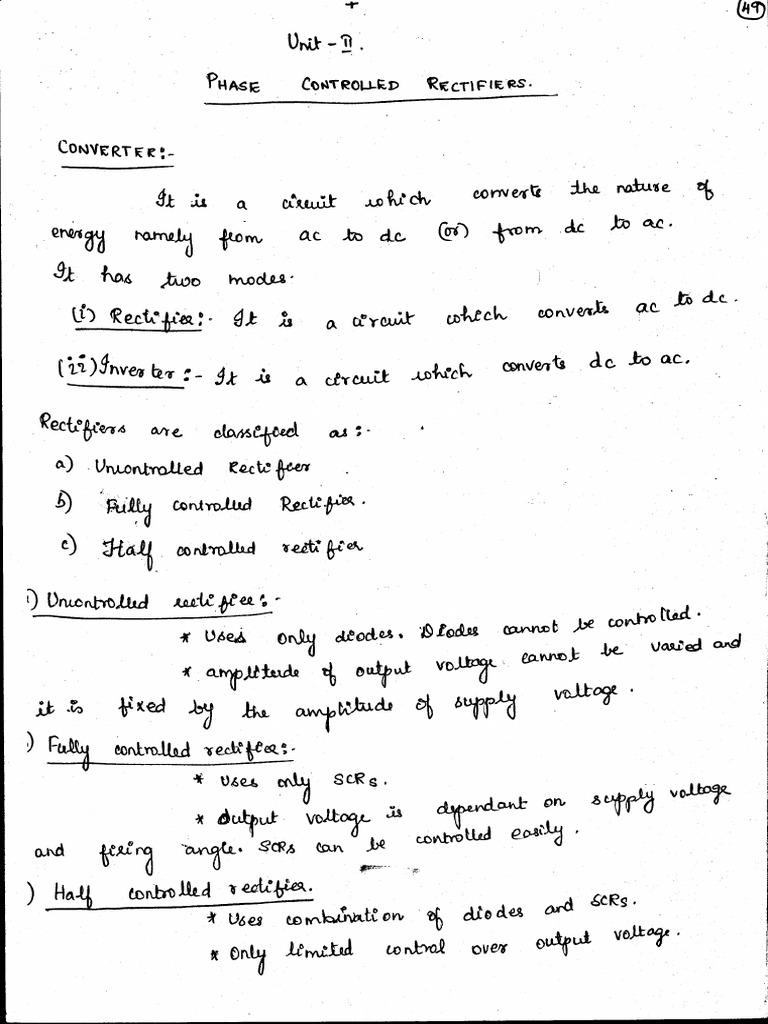 49
Unit - II.
PHASE CONTROLLED RECTIFIERS.
CONVERTER:-
It is a circuit which converts the nature of
energy namely from ac to dc (or) from dc to ac.
It has two modes.
(i) Rectifier:- It is a circuit which converts ac to dc.
(ii) Inverter:- It is a circuit which converts dc to ac.
Rectifiers are classified as:-
a) Uncontrolled Rectifier
b) Fully controlled Rectifier.
c) Half controlled rectifier
) Uncontrolled rectifier:-
* Uses only diodes. Diodes cannot be controlled.
* amplitude of output voltage cannot be varied and
it is fixed by the amplitude of supply voltage.
) Fully controlled rectifier:-
* Uses only SCRs.
* Output voltage is dependant on supply voltage
and firing angle. SCRs can be controlled easily.
) Half controlled rectifier.
* Uses combination of diodes and SCRs.
* Only limited control over output voltage.